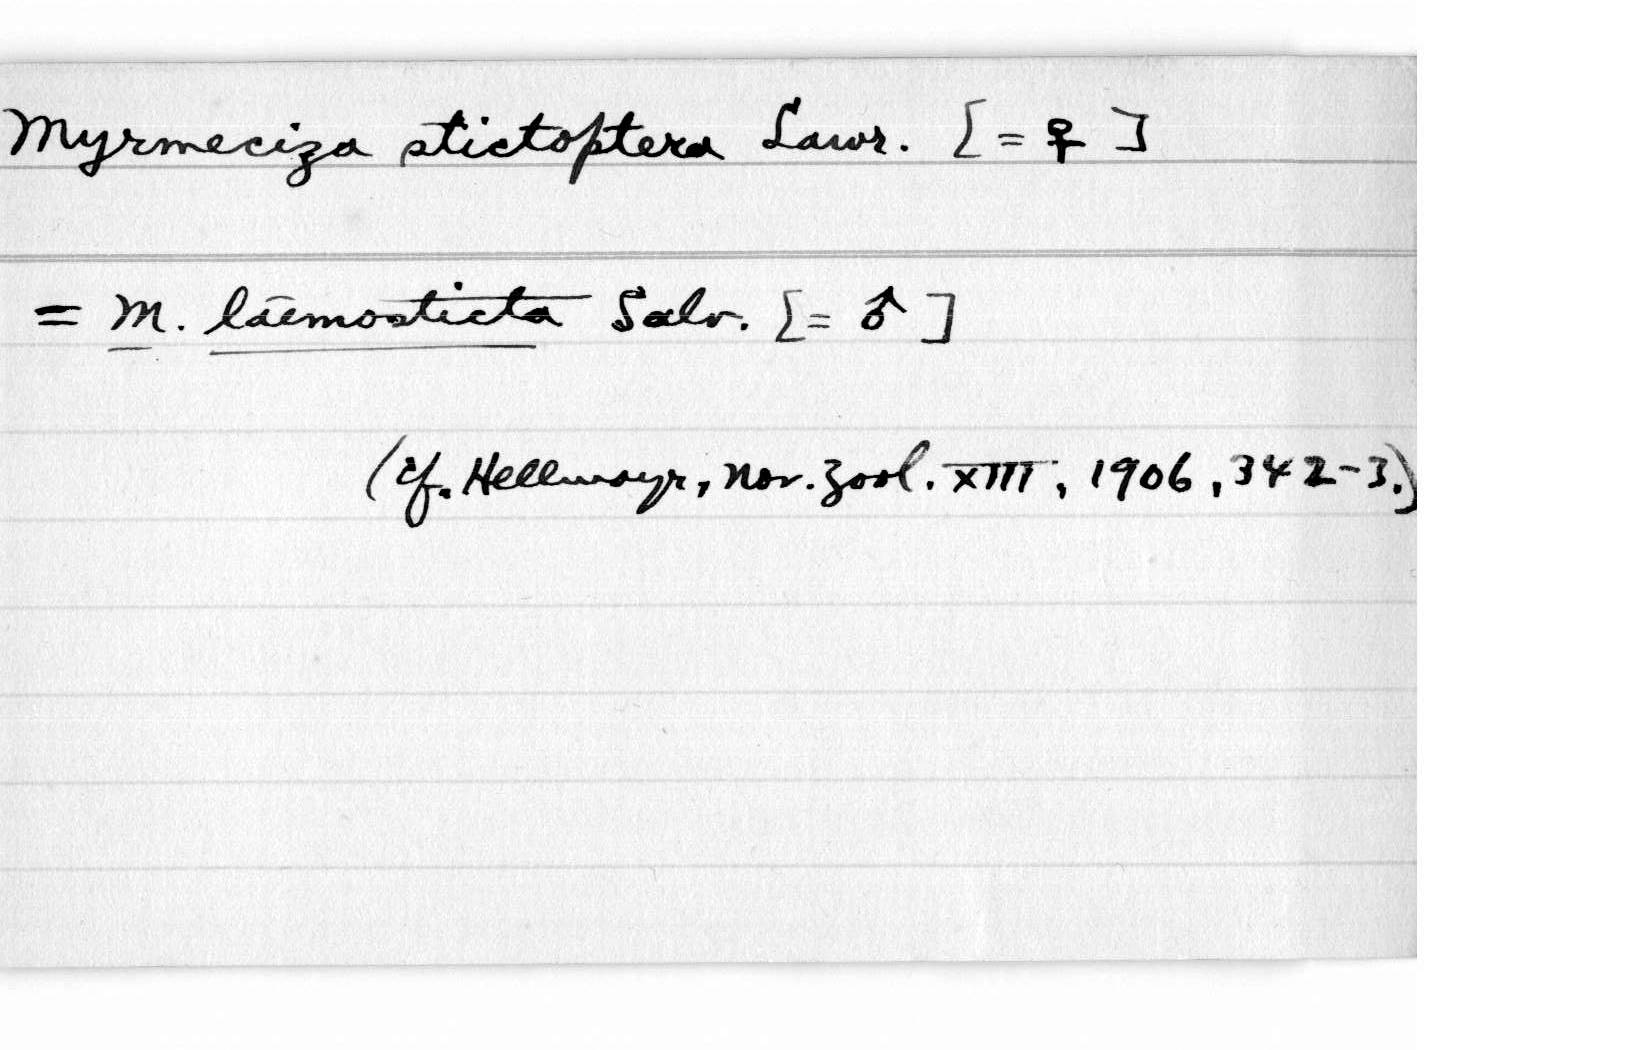 Myrmeciza stictoptera Lawr. [= ♀ ]
= M. laemosticta Salv. [= ♂ ]
(cf. Hellmayr, Nov. Zool. XIII, 1906, 342-3.)